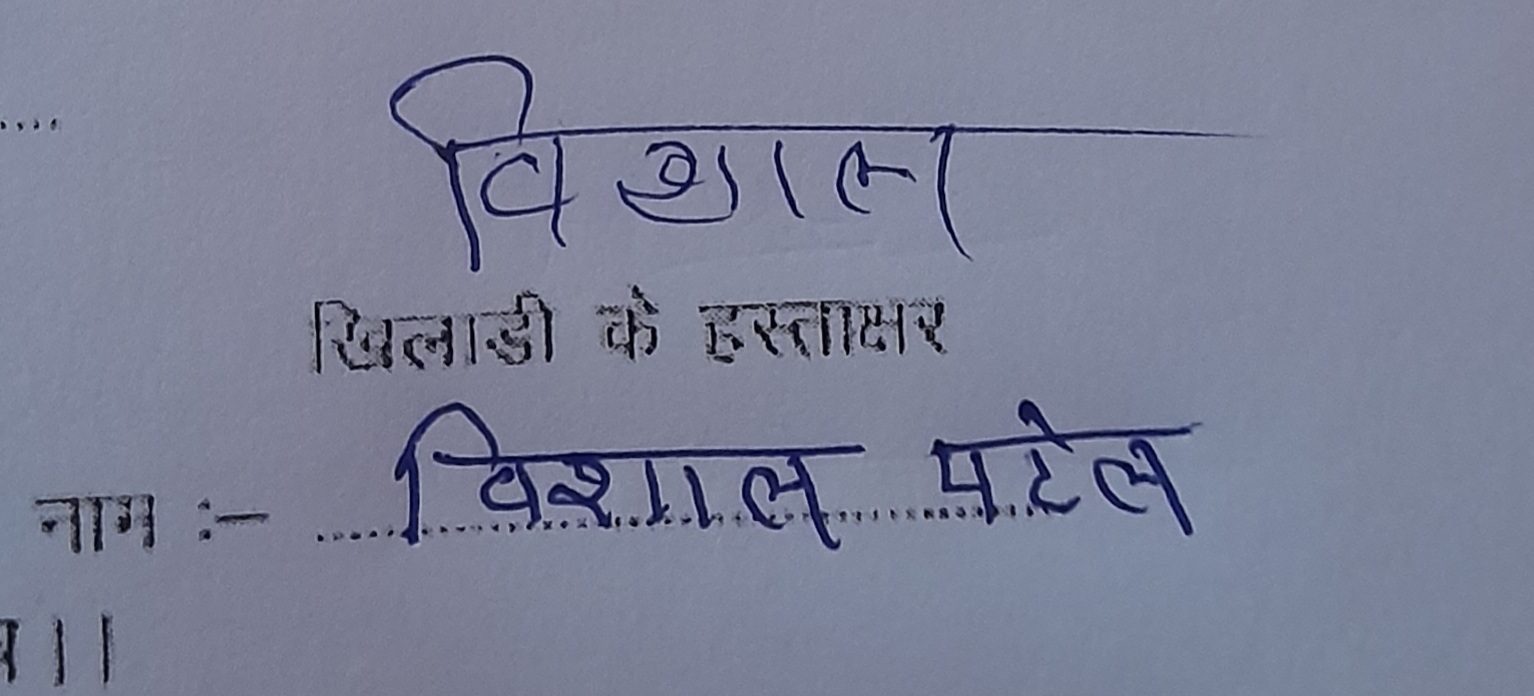 विशाल
खिलाडी के हस्ताक्षर
नाम :- विशाल पटेल